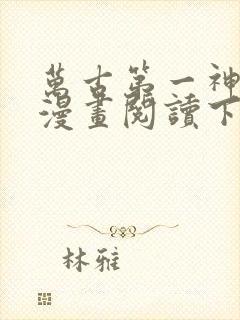 萬古第一神
漫畫閱讀下
林雅